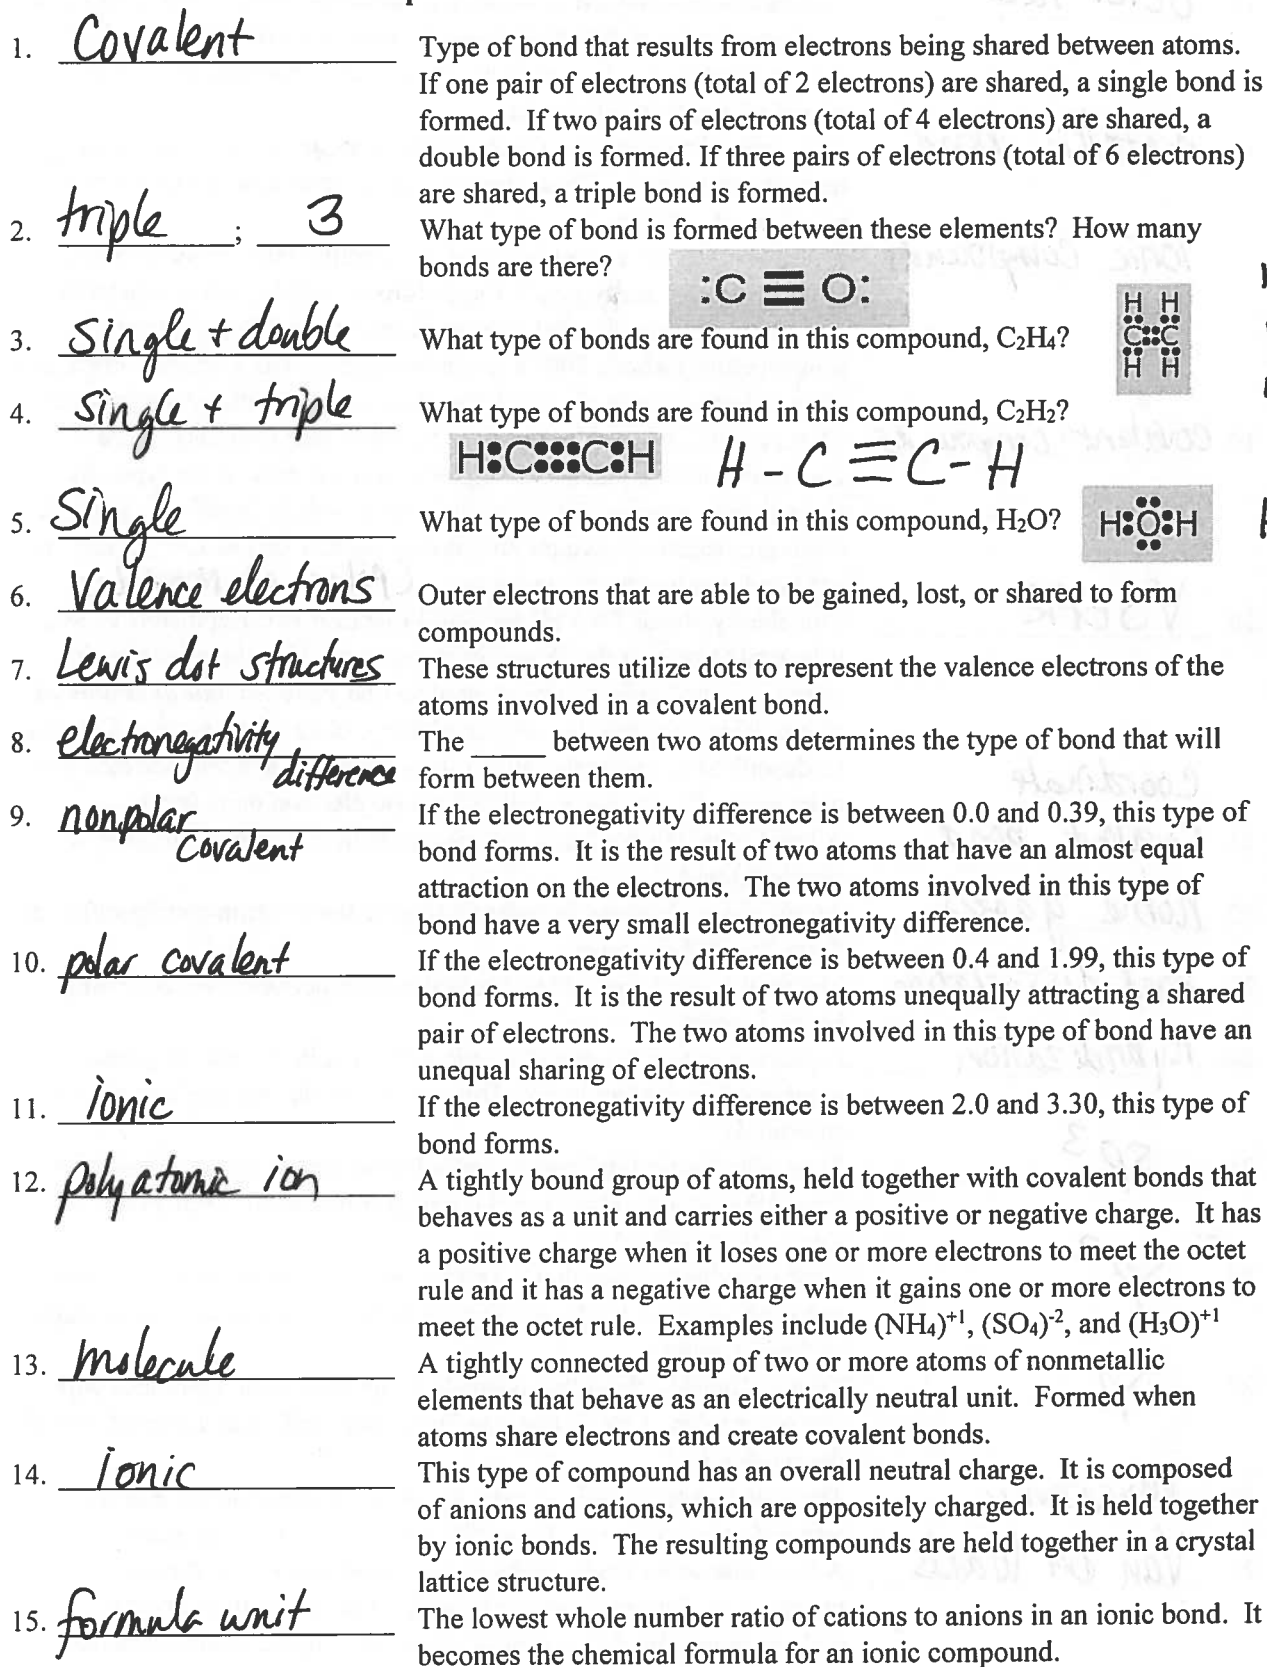 1. Covalent Type of bond that results from electrons being shared between atoms.
If one pair of electrons (total of 2 electrons) are shared, a single bond is
formed. If two pairs of electrons (total of 4 electrons) are shared, a
double bond is formed. If three pairs of electrons (total of 6 electrons)
are shared, a triple bond is formed.
2. triple ; 3 What type of bond is formed between these elements? How many
bonds are there?
:C ≡ O:
3. Single + double What type of bonds are found in this compound, C₂H₄?
H H
C::C
H H
4. Single + triple What type of bonds are found in this compound, C₂H₂?
H:C:::C:H H - C ≡ C - H
5. Single What type of bonds are found in this compound, H₂O?
H:O:H
6. Valence electrons Outer electrons that are able to be gained, lost, or shared to form
compounds.
7. Lewis dot structures These structures utilize dots to represent the valence electrons of the
atoms involved in a covalent bond.
8. electronegativity The _____ between two atoms determines the type of bond that will
difference form between them.
9. nonpolar If the electronegativity difference is between 0.0 and 0.39, this type of
covalent bond forms. It is the result of two atoms that have an almost equal
attraction on the electrons. The two atoms involved in this type of
bond have a very small electronegativity difference.
10. polar covalent If the electronegativity difference is between 0.4 and 1.99, this type of
bond forms. It is the result of two atoms unequally attracting a shared
pair of electrons. The two atoms involved in this type of bond have an
unequal sharing of electrons.
11. ionic If the electronegativity difference is between 2.0 and 3.30, this type of
bond forms.
12. polyatomic ion A tightly bound group of atoms, held together with covalent bonds that
behaves as a unit and carries either a positive or negative charge. It has
a positive charge when it loses one or more electrons to meet the octet
rule and it has a negative charge when it gains one or more electrons to
meet the octet rule. Examples include (NH₄)⁺¹, (SO₄)⁻², and (H₃O)⁺¹
13. molecule A tightly connected group of two or more atoms of nonmetallic
elements that behave as an electrically neutral unit. Formed when
atoms share electrons and create covalent bonds.
14. ionic This type of compound has an overall neutral charge. It is composed
of anions and cations, which are oppositely charged. It is held together
by ionic bonds. The resulting compounds are held together in a crystal
lattice structure.
15. formula unit The lowest whole number ratio of cations to anions in an ionic bond. It
becomes the chemical formula for an ionic compound.